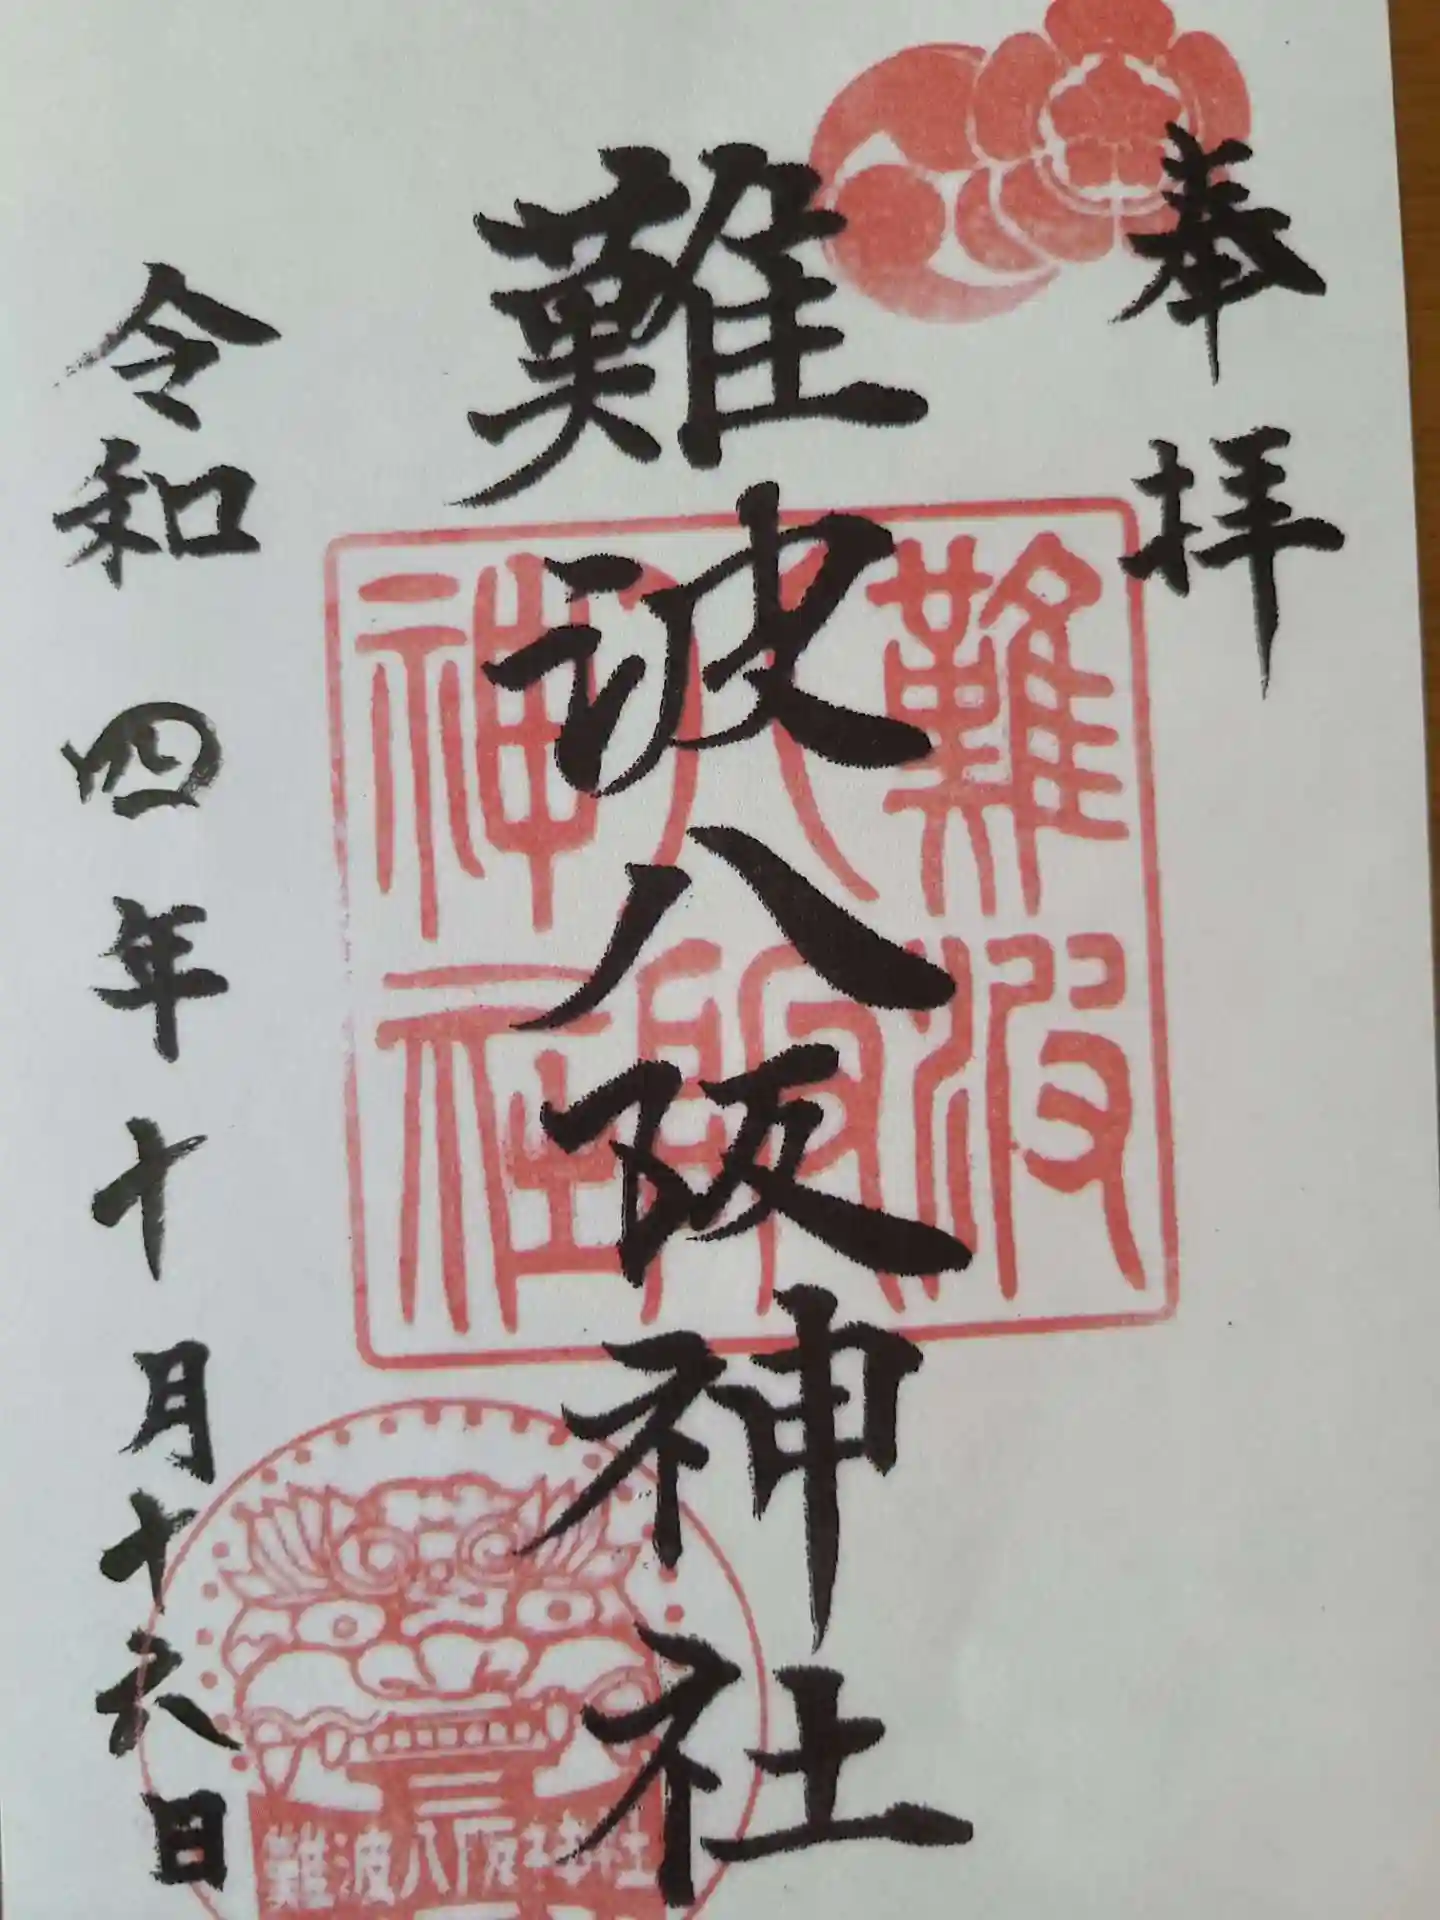 奉拝
難波八阪神社
難波
八阪
神社
令和四年十月十六日
難波八阪神社